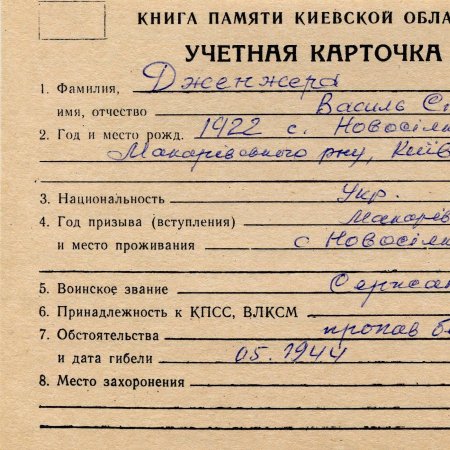 КНИГА ПАМЯТИ КИЕВСКОЙ ОБЛА
УЧЕТНАЯ КАРТОЧКА
1. Фамилия, Дженжера
имя, отчество Василь Ст
2. Год и место рожд. 1922 с. Новосілк
Макарівського р-ну, Київ
3. Национальность Укр.
4. Год призыва (вступления) Макарів
и место проживания с Новосілк
5. Воинское звание Сержан
6. Принадлежность к КПСС, ВЛКСМ
7. Обстоятельства пропав бе
и дата гибели 05.1944
8. Место захоронения